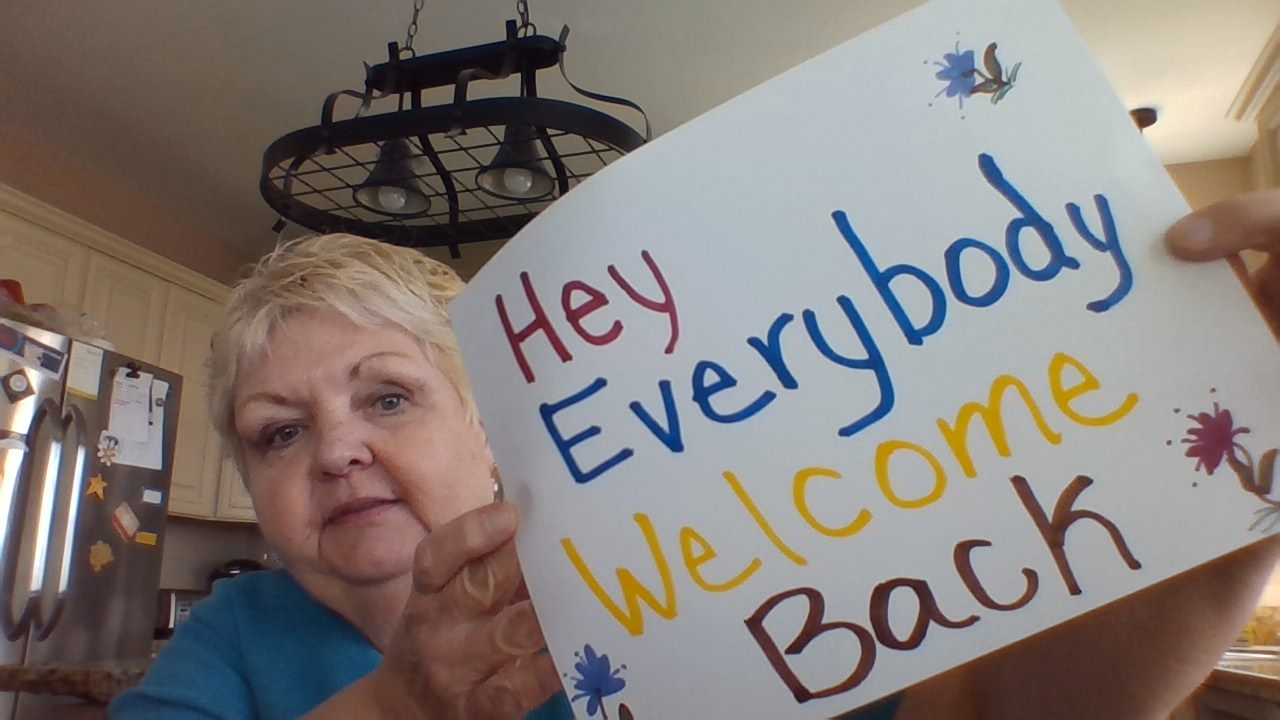 Hey
Everybody
Welcome
Back